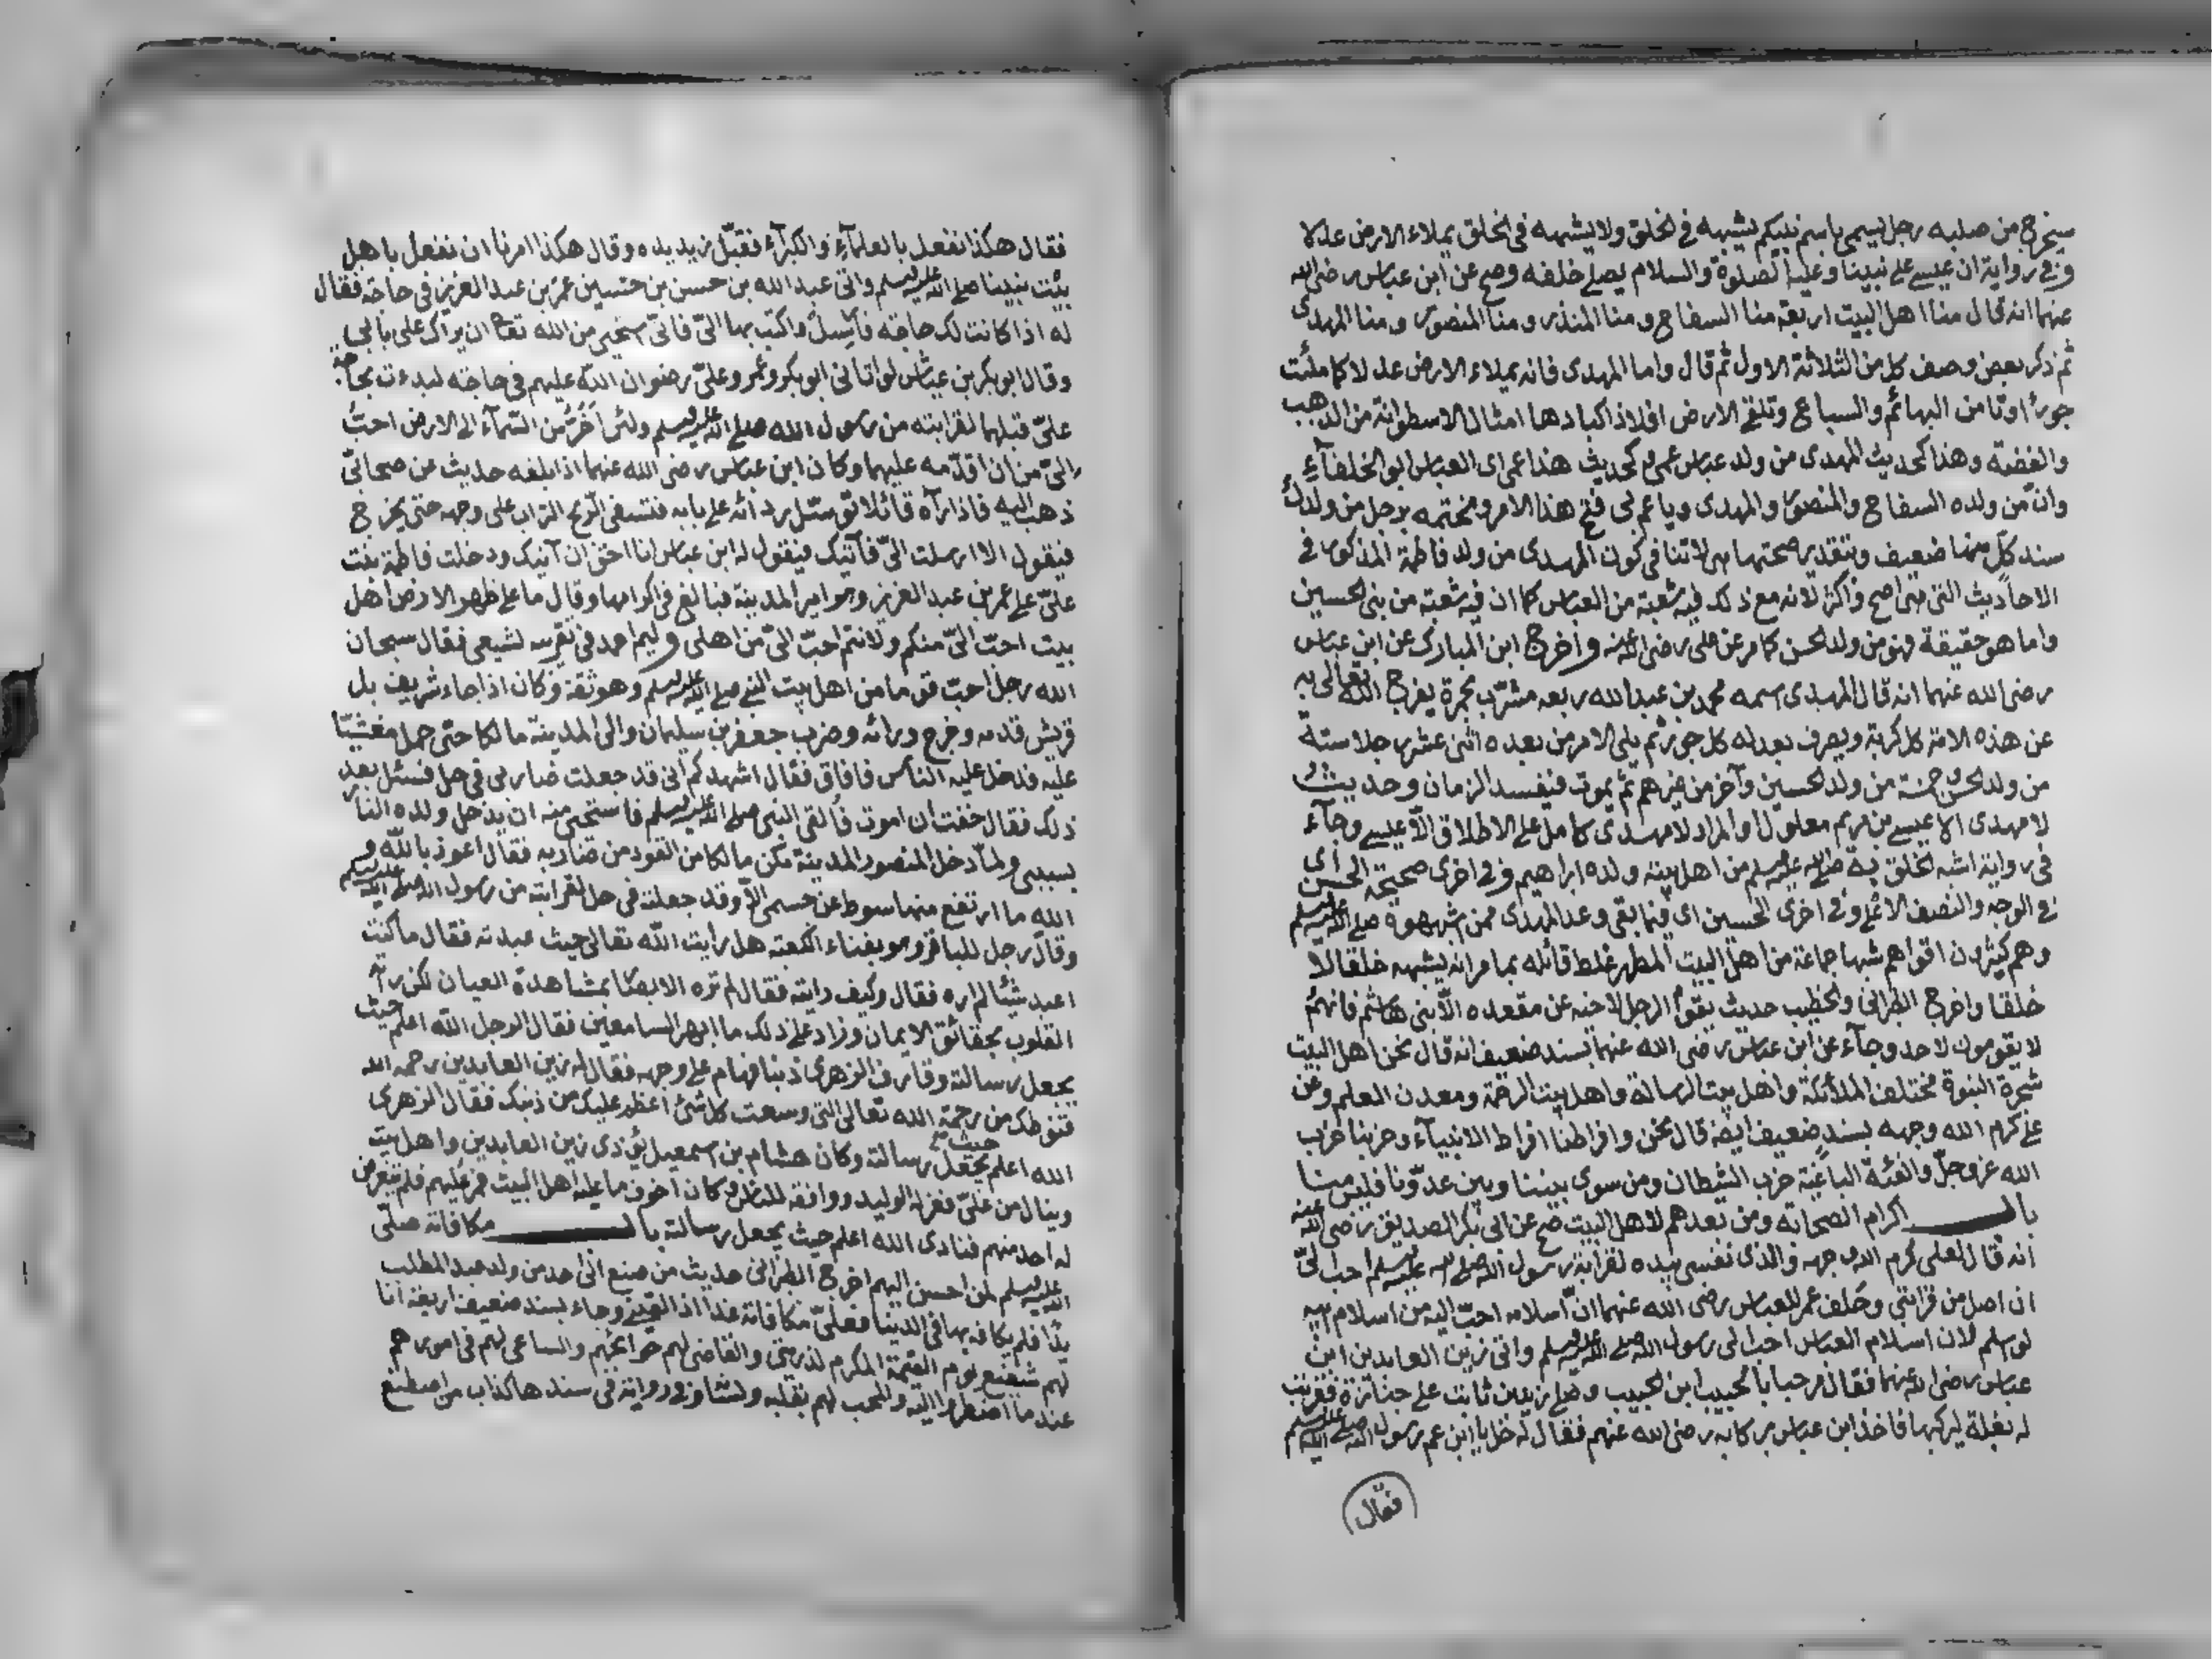 سيخرج من صلبه رجل يسمى باسم نبيكم يشبهه في الخلق ولا يشبهه في الخلق يملاء الارض عدلا
وفي رواية ان عيسى على نبينا وعليه الصلوة والسلام يصلي خلفه وصح عن ابن عباس رضي الله
عنهما انه قال منا اهل البيت اربعة منا السفاح ومنا المنذر ومنا المنصور ومنا المهدى
ثم ذكر بعض وصف كل من الثلاثة الاول ثم قال واما المهدى فانه يملاء الارض عدلا كما ملئت
جورا وتامن البهائم والسباع وتلقى الارض افلاذ اكبادها امثال الاسطوانة من الذهب
والفضة وهذا كحديث المهدى من ولد عباس عمى وكحديث هذا عمى ابو الخلفاء
وان من ولده السفاح والمنصور والمهدى ويا عم بى فتح هذا الامر ومختمه برجل من ولدك
سند كل منها ضعيف وبتقدير صحتها لا تنافى كون المهدى من ولد فاطمة المذكور فى
الاحاديث التى هى اصح واكثر لانه مع ذلك فيه شعبة من العباس كما ان فيه شعبة من بنى الحسين
واما هو حقيقة فهو من ولد الحسن كما مر عن على رضى الله عنه واخرج ابن المبارك عن ابن عباس
رضى الله عنهما انه قال المهدى اسمه محمد بن عبد الله ربعه مشرب بحمرة يفرج الله تعالى به
عن هذه الامة كل كربة ويصرف بعدله كل جور ثم يلى الامر من بعده اثنى عشر رجلا ستة
من ولد الحسن وخمسة من ولد الحسين وآخر من غيرهم ثم يموت فيفسد الزمان وحديث
لا مهدى الا عيسى بن مريم معلول او المراد لا مهدى كامل على الاطلاق الا عيسى وجآء
فى رواية اشبه الخلق به صلى الله عليه وسلم من اهل بيته ولده ابراهيم وفى اخرى صحيحة الحسن اى
فى الوجه والنصف الاعلى وفى اخرى الحسين اى فيما بقى وعد المهدى ممن اشبهوه صلى الله عليه وسلم
وهم كثيرون اقواهم شبها جماعة من اهل البيت المطهر غلط قائله بما مر انه يشبهه خلقا لا
خلقا واخرج الطبرانى والخطيب حديث يقوم الرجل لاخيه عن مقعده الا بنى هاشم فانهم
لا يقومون لاحد وجآء عن ابن عباس رضى الله عنهما بسند ضعيف انه قال نحن اهل البيت
شجرة النبوة مختلف الملائكة واهل بيت الرسالة واهل بيت الرحمة ومعدن العلم وعن
على كرم الله وجهه بسند ضعيف ايضا قال نحن وافراطنا افراط الانبيآء وحزبنا حزب
الله عز وجل والفئة الباغية حزب الشيطان ومن سوى بيننا وبين عدونا فليس منا
باب اكرام الصحابة ومن بعدهم لاهل البيت صح عن ابى بكر الصديق رضى الله عنه
انه قال لعلى كرم الله وجهه والذى نفسى بيده لقرابة رسول الله صلى الله عليه وسلم احب الى
ان اصل من قرابتى وحلف عمر للعباس رضى الله عنهما ان اسلامه احب اليه من اسلام ابيه
لو اسلم لان اسلام العباس احب الى رسول الله صلى الله عليه وسلم واتى زين العابدين ابن
عباس رضى الله عنهما فقال مرحبا بالحبيب ابن الحبيب وصلى زيد بن ثابت على جنازة فقربت
له بغلة ليركبها فاخذ ابن عباس بركابه رضى الله عنهم فقال له خل يا ابن عم رسول الله صلى الله عليه وسلم
فقال
فقال هكذا نفعل بالعلمآء والكبرآء فقبل زيد يده وقال هكذا امرنا ان نفعل باهل
بيت نبينا صلى الله عليه وسلم واتى عبد الله بن حسن بن حسين عمر بن عبد العزيز فى حاجة فقال
له اذا كانت لك حاجة فارسل واكتب بها الى فانى استحيى من الله تعالى ان يراك على بابى
وقال ابو بكر بن عياش لو اتانى ابو بكر وعمر وعلى رضوان الله عليهم فى حاجة لبدءت بحاجة
على قبلهما لقرابته من رسول الله صلى الله عليه وسلم ولئن اخر من السمآء الى الارض احب
الى من ان اقدمه عليهما وكان ابن عباس رضى الله عنهما اذا بلغه حديث عن صحابى
ذهب اليه فاذا رآه قائلا توسد ردائه على بابه فتسفى الريح التراب على وجهه حتى يخرج
فيقول الا ارسلت الى فآتيك فيقول له ابن عباس انا احق ان آتيك ودخلت فاطمة بنت
على على عمر بن عبد العزيز وهو امير المدينة فبالغ فى اكرامها وقال ما على ظهر الارض اهل
بيت احب الى منكم ولانتم احب الى من اهلى وليم احمد فى تقريبه لشيعى فقال سبحان
الله رجل احب قوما من اهل بيت النبى صلى الله عليه وسلم وهو ثقة وكان اذا جاء شريف بل
قريش قدمه وخرج ورائه وضرب جعفر بن سليمان والى المدينة مالكا حتى حمل مغشيا
عليه فدخل عليه الناس فافاق فقال اشهدكم انى قد جعلت ضاربى فى حل فسئل بعد
ذلك فقال خفت ان اموت فالقى النبى صلى الله عليه وسلم فاستحى منه ان يدخل ولده النار
بسببى ولما دخل المنصور المدينة مكن مالكا من القود من ضاربه فقال اعوذ بالله و
الله ما ارتفع منها سوط عن جسمى الا وقد جعلته فى حل لقرابته من رسول الله صلى الله عليه وسلم
وقال رجل للباقر وهو بفناء الكعبة هل رايت الله تعالى حيث عبدته فقال ما كنت
اعبد شيئا لم اره فقال وكيف رايته فقال لم تره الابصار بمشاهدة العيان لكن رآته
القلوب بحقائق الايمان وزاد على ذلك ما ابهر السامعين فقال الرجل الله اعلم حيث
يجعل رسالته وقارف الزهرى ذنبا فهام على وجهه فقال له زين العابدين رحمه الله
قنوطك من رحمة الله تعالى التى وسعت كل شئ اعظم عليك من ذنبك فقال الزهرى
الله اعلم حيث يجعل رسالته وكان هشام بن اسمعيل يؤذى زين العابدين واهل بيته
وينال من على فعزله الوليد وواقفه للناس وكان اخوف ما عليه اهل البيت فمر عليهم فلم يتعرض
له احد منهم فنادى الله اعلم حيث يجعل رسالته باب مكافاته صلى
الله عليه وسلم لمن احسن اليهم اخرج الطبرانى حديث من صنع الى احد من ولد عبد المطلب
يدا فلم يكافه بها فى الدنيا فعلى مكافاته غدا اذا لقينى وجاء بسند ضعيف اربعة انا
لهم شفيع يوم القيمة المكرم لذريتى والقاضى لهم حوائجهم والساعى لهم فى امورهم
عندما اضطروا اليه والمحب لهم بقلبه ولسانه وفى رواية فى سندها كذاب من اصطنع